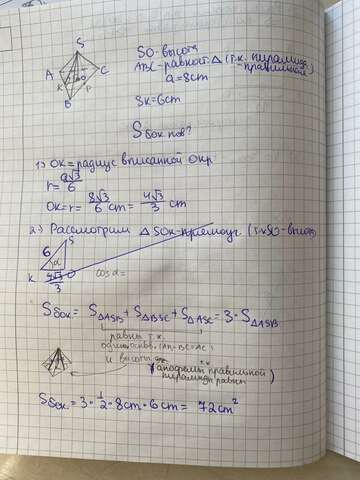 S
A
C
K
O
B
P
SO-высота
ABC-равност. Δ (т.к. пирамида - правильная)
a=8cm
SK=6cm
Sбок пов?
1) OK=радиус вписанной окр
r= a√3/6
OK=r= 8√3/6 cm= 4√3/3 cm
2) Рассмотрим ΔSOK-прямоуг. (т.к SO-высота)
S
6
α
K
O
4√3/3
cosα=
Sбок= SΔASB+SΔBSC+SΔASC=3·SΔASB
равны т.к.
(AB=BC=AC)
и высоты
(т.к апофемы правильной
пирамиды равны)
Sбок=3·1/2·8cm·6cm= 72cm²